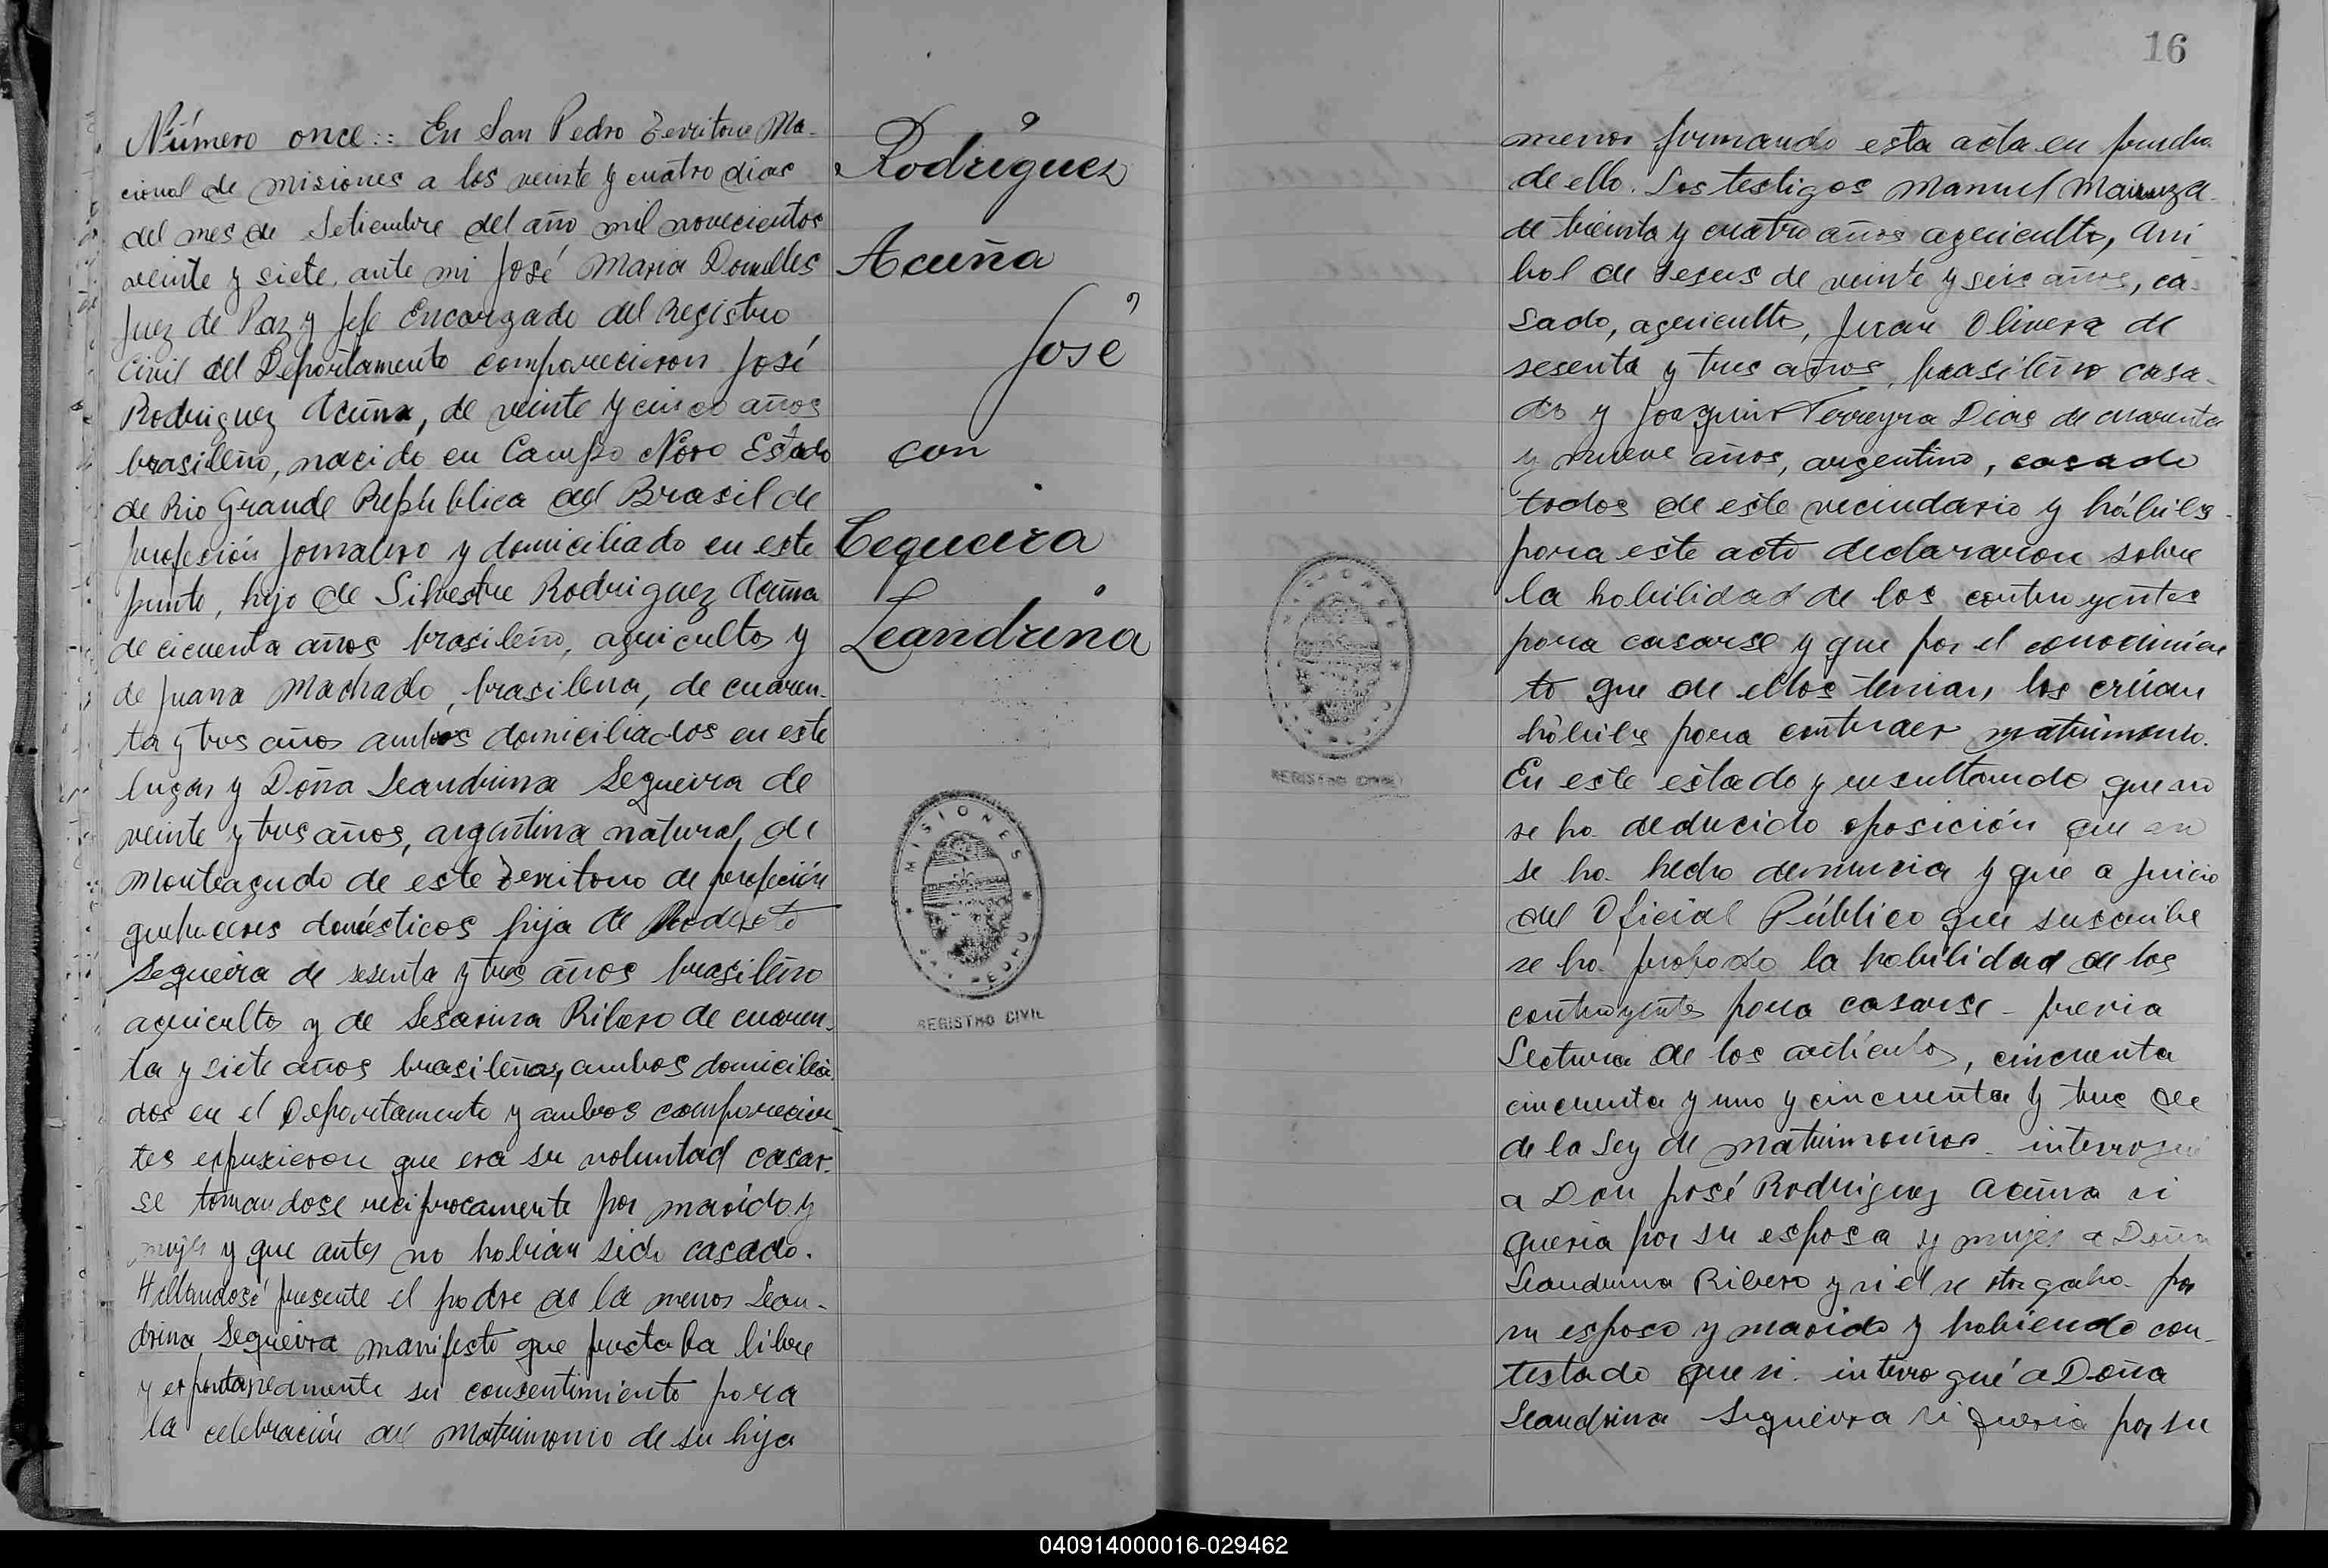 Número once:: En San Pedro Territorio Na-
cional de Misiones a los veinte y cuatro dias
del mes de Setiembre del año mil novecientos
veinte y siete, ante mi José Maria Dornelles
Juez de Paz y Jefe Encargado del Registro
Civil del Departamento comparecieron José
Rodriguez Acuña, de veinte y cinco años
brasileño, nacido en Campo Novo Estado
de Rio Grande Republica del Brasil de
profesión jornalero y domiciliado en este
punto, hijo de Silvestre Rodriguez Acuña
de cicuenta años, brasileño, agricultor y
de Juana Machado, brasilena, de cuaren-
ta y tres años ambos domiciliados en este
lugar y Doña Leandrina Sequeira de
veinte y tres años, argentina natural de
Monteagudo de este Territorio de profeción
quehaceres domésticos hija de Modesto
Sequeira de sesenta y tres años brasileño
agricultor y de Sesarina Ribero de cuaren-
ta y siete años brasileña, ambos domicilia-
dos en el Departamento y ambos comparecien-
tes expusieron que era su voluntad casar-
se tomandose reciprocamente por marido y
mujer y que antes no habian sido casado.
Hallandosé presente el padre de la menor Lean-
drina Sequeira manifesto que prestaba libre
y espontaneamente su consentimiento para
la celebración del Matrimonio de su hija
Rodriguez
Acuña
José
con
Cequeira
Leandrina
MISIONES
REGISTRO CIVIL
16
menor firmando esta acta en prueba
de ello. Los testigos Manuel
de treinta y cuatro años agricultor, Ani
bal de Jesus de veinte y seis años, ca-
sado, agricultor, Juan Olivera de
sesenta y tres años, brasileño casa-
do y Joaquin Ferreyra Dias de cuarenta
y nueve años, argentino, casado
todos de este vecindario y hábiles
para este acto declararon sobre
la habilidad de los contrayentes
para casarse y que por el conocimien
to que de ellos tenian, los crúian
hábiles para contraer matrimonio.
En este estado y resultando que no
se ha deducido oposición que no
se ha hecho denuncia y que a juicio
del Oficial Público que suscribe
se ha probado la habilidad de los
contrayentes para casarse - previa
Lectura de los artículos, cincuenta
cincuenta y uno y cincuenta y tres de
de la Ley de Matrimonios - interrogué
a Don José Rodriguez Acuña si
queria por su esposa y mujer a Doña
Leandrina Ribero y si el se otorgaba por
su esposo y marido y habiendo con-
testado que si. interrogué a Doña
Leandrina Sequeira si queria por su
MISIONES
REGISTRO CIVIL
040914000016-029462